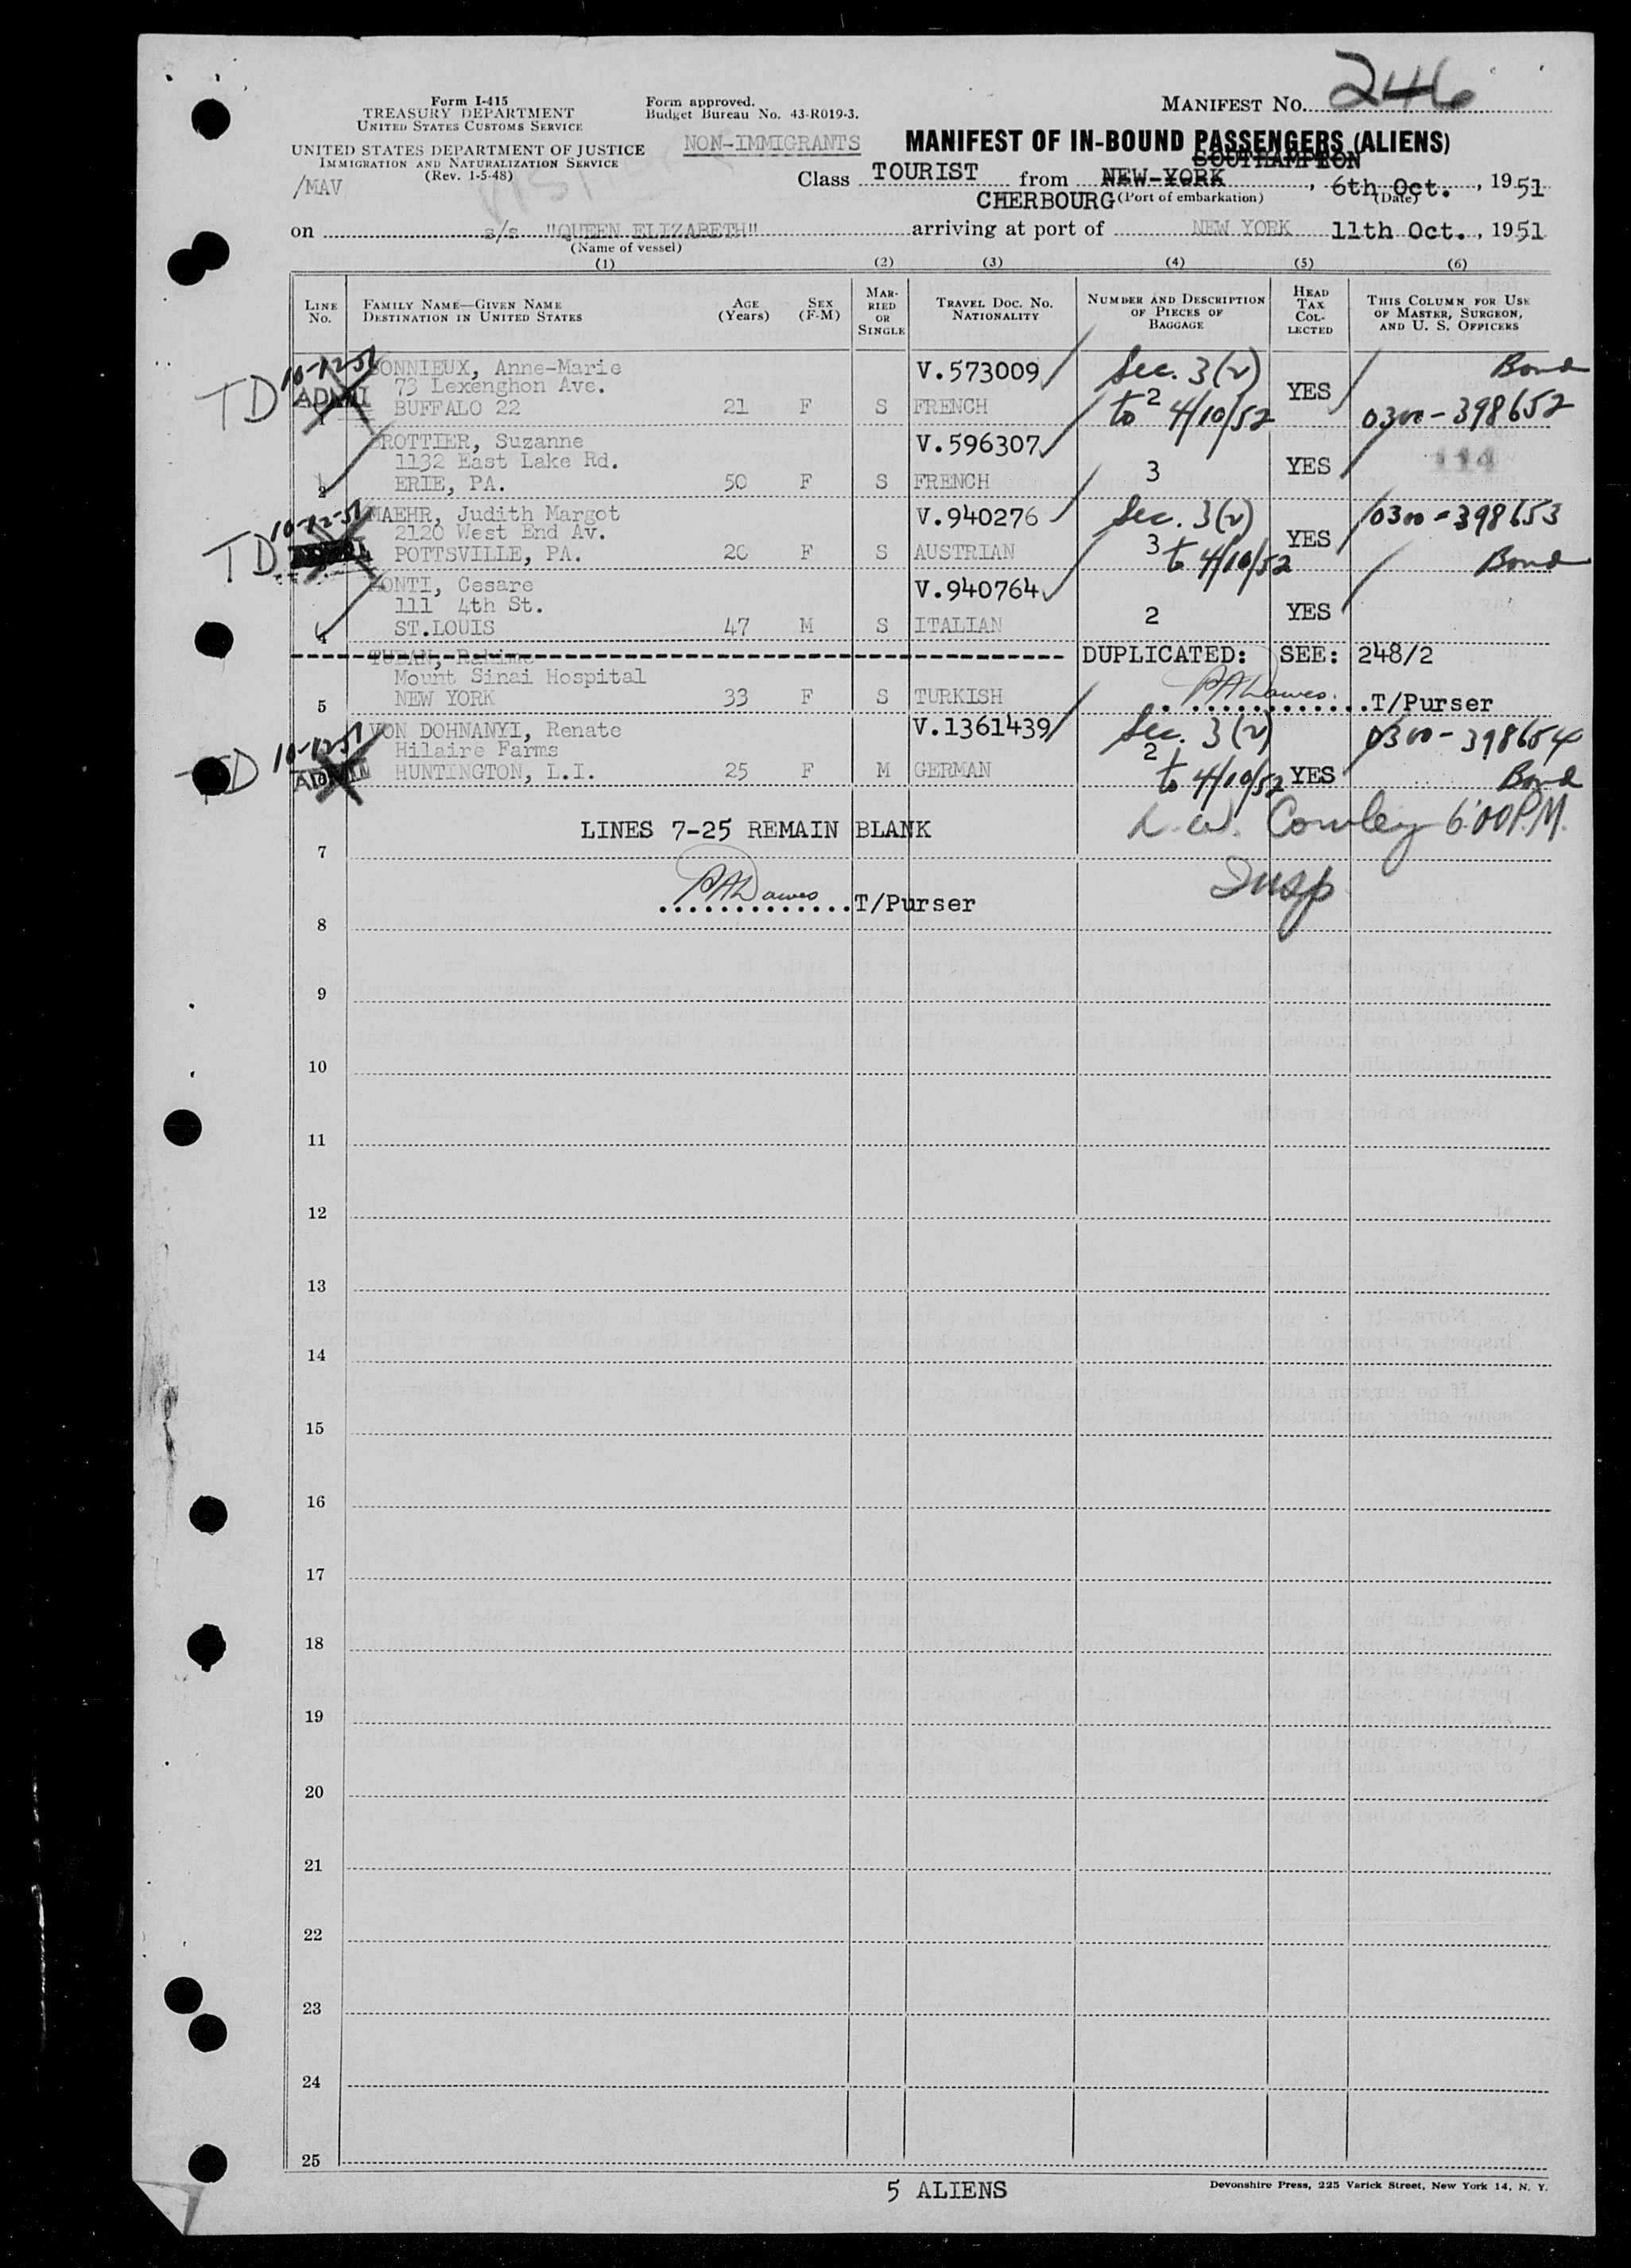 246
Form I-415
TREASURY DEPARTMENT
UNITED STATES CUSTOMS SERVICE
Form approved.
Budget Bureau No. 43-R019-3.
MANIFEST NO.
UNITED STATES DEPARTMENT OF JUSTICE
IMMIGRATION AND NATURALIZATION SERVICE
(Rev. 1-5-48)
/MAV
NON-IMMIGRANTS
MANIFEST OF IN-BOUND PASSENGERS (ALIENS)
SOUTHAMPTON
Class TOURIST from NEW-YORK, 6th Oct., 1951
CHERBOURG (Port of embarkation) (Date)
on s/s "QUEEN ELIZABETH" arriving at port of NEW YORK 11th Oct., 1951
(Name of vessel)
(1) (2) (3) (4) (5) (6)
LINE NO. FAMILY NAME—GIVEN NAME DESTINATION IN UNITED STATES AGE (Years) SEX (F-M) MARRIED OR SINGLE TRAVEL DOC. NO. NATIONALITY NUMBER AND DESCRIPTION OF PIECES OF BAGGAGE HEAD TAX COLLECTED THIS COLUMN FOR USE OF MASTER, SURGEON, AND U. S. OFFICERS
10-12-51 BONNIEUX, Anne-Marie V.573009 Sec. 3(2) Bond
TD 73 Lexenghon Ave. YES
1 BUFFALO 22 21 F S FRENCH 2 to 4/10/52 0300-398652
BROTTIER, Suzanne V.596307
1132 East Lake Rd. YES 114
2 ERIE, PA. 50 F S FRENCH 3
10-12-51 MAEHR, Judith Margot V.940276 Sec. 3(2) 0300-398653
TD 2120 West End Av. YES
POTTSVILLE, PA. 20 F S AUSTRIAN 3 to 4/10/52 Bond
CONTI, Cesare V.940764
111 4th St. YES
4 ST.LOUIS 47 M S ITALIAN 2
TUBAN, Rahime DUPLICATED: SEE: 248/2
Mount Sinai Hospital
5 NEW YORK 33 F S TURKISH PADawes T/Purser
10-12-51 VON DOHNANYI, Renate V.1361439 Sec. 3(2) 0300-398654
TD Hilaire Farms 2
HUNTINGTON, L.I. 25 F M GERMAN to 4/10/52 YES Bond
LINES 7-25 REMAIN BLANK L.W. Cowley 6:00 P.M.
7
PADawes T/Purser Insp
8
9
10
11
12
13
14
15
16
17
18
19
20
21
22
23
24
25
5 ALIENS
Devonshire Press, 225 Varick Street, New York 14, N. Y.